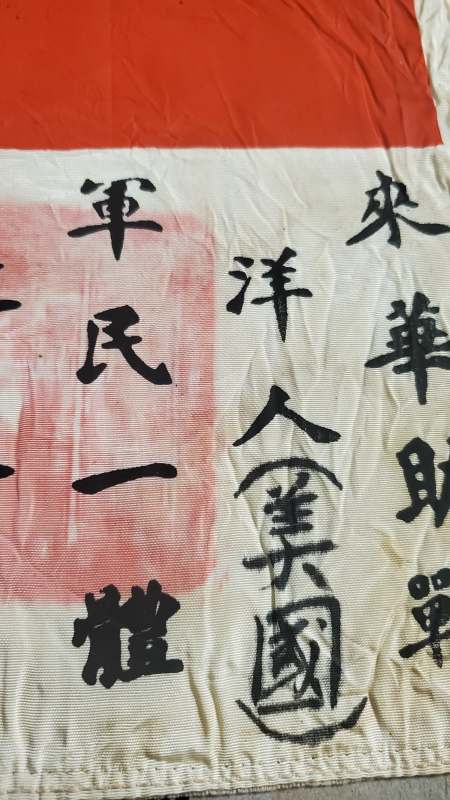 來華助戰
洋人(美國)
軍民一體